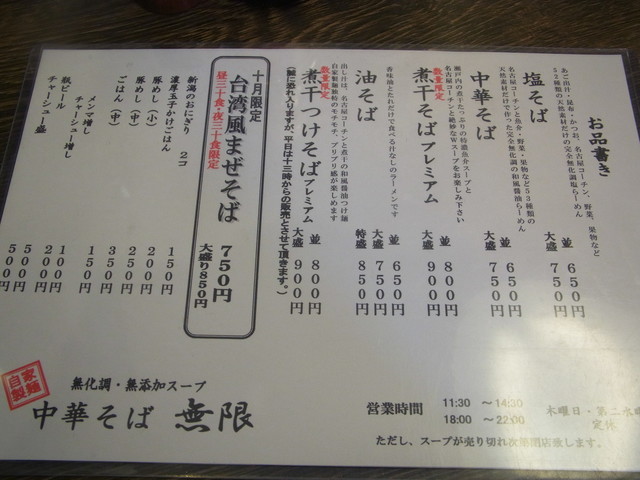 お品書き
あご出汁・昆布・かつお、名古屋コーチン、野菜、果物など
５３種類の、天然素材だけの完全無化調塩らーめん
塩そば
並 ６５０円
大盛 ７５０円
名古屋コーチンと魚介・野菜・果物など５３種類の
天然素材だけで作った完全無化調の和風醤油らーめん
中華そば
並 ６５０円
大盛 ７５０円
瀬戸内の煮干たっぷりの特濃魚介スープと
名古屋コーチンと絶妙なＷスープをお楽しみ下さい
数量限定
煮干そばプレミアム
並 ８００円
大盛 ９００円
香味油とたれだけで食べる汁なしのラーメンです
油そば
並 ６５０円
大盛 ７５０円
特盛 ８５０円
出し汁は、名古屋コーチンと煮干の和風醤油つけ麺
自家製麺独特のモチモチ、プリプリ感が楽しめます
数量限定
煮干つけそばプレミアム
並 ８００円
大盛 ９００円
（誠に恐れ入りますが、平日は十三時からの販売とさせて頂きます。）
十月限定
台湾風まぜそば ７５０円
昼二十食・夜二十食限定 大盛り８５０円
新潟のおにぎり ２コ １５０円
濃厚玉子かけごはん ２００円
豚めし（小） ２００円
豚めし（中） ２５０円
ごはん（中） ３５０円
メンマ増し １５０円
チャーシュー増し １００円
瓶ビール ２００円
チャーシュー盛 ５００円
５００円
自家製麺
無化調・無添加スープ
中華そば 無限
営業時間 11:30 ～14:30
18:00 ～22:00
木曜日・第二水曜
定休
ただし、スープが売り切れ次第閉店致します。